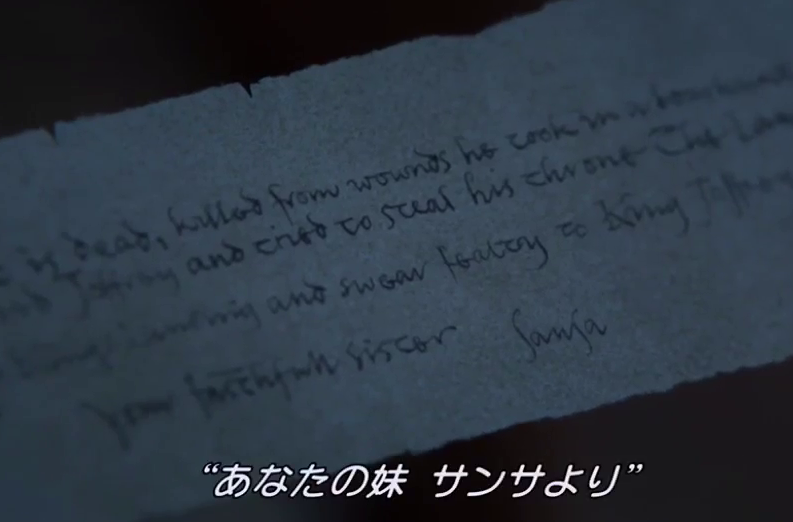 is dead, killed from wounds he took in a
and tried to steal his throne The
and swear fealty to King
your faithfull sister Sansa
“あなたの妹 サンサより”